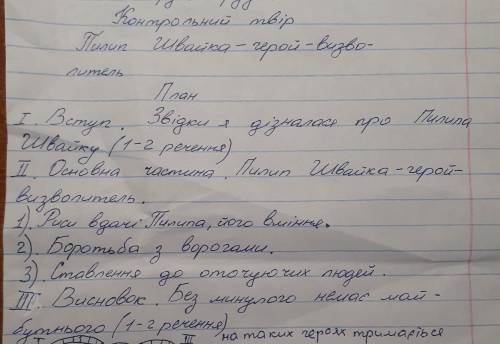 Контрольний твір
Пилип Швайка - герой-визво-
литель
План
I. Вступ. Звідки я дізналася про Пилипа
Швайку (1-2 речення)
II. Основна частина. Пилип Швайка - герой-
визволитель.
1). Риси вдачі Пилипа, його вміння.
2). Боротьба з ворогами.
3). Ставлення до оточуючих людей.
III. Висновок. Без минулого немає май-
бутнього (1-2 речення)
на таких героях тримається